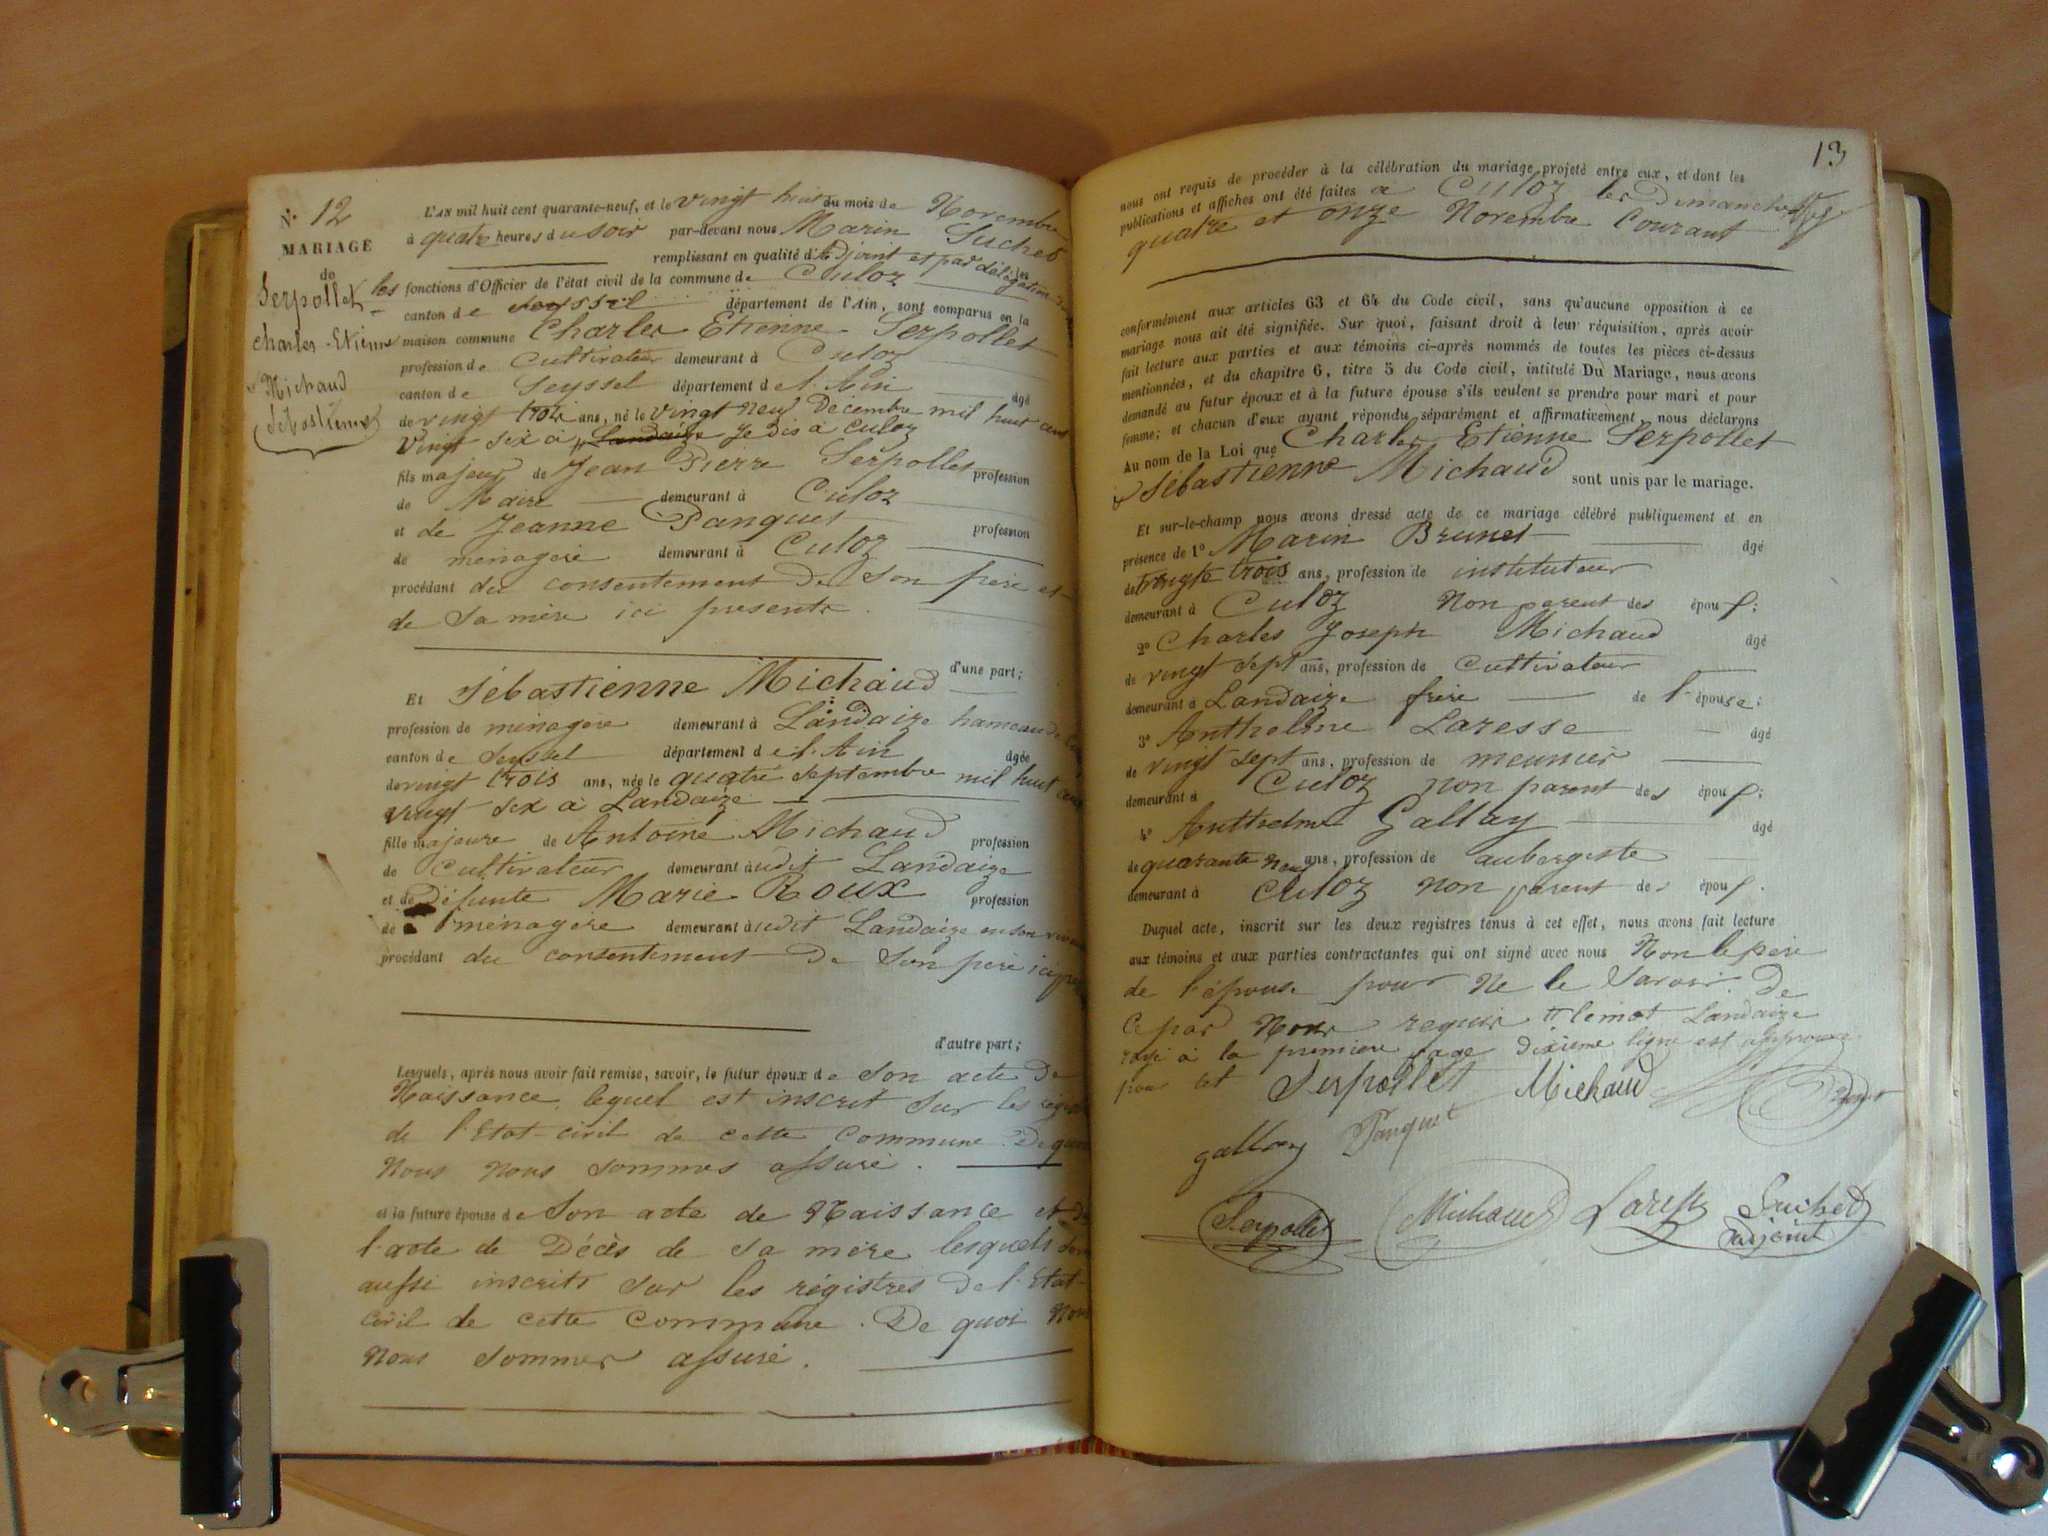 N.° 12
MARIAGE
de
Serpollet
charles-Etienne
et Michaud
Sébastienne
L'AN mil huit cent quarante-neuf, et le vingt huit du mois de Novembre
à quatre heures du soir par-devant nous Marin Suchet
remplissant en qualité d'Adjoint et par délégation les
fonctions d'Officier de l'état civil de la commune de Culoz
canton de Seyssel département de l'Ain, sont comparus en la
maison commune Charles Etienne Serpollet
profession de Cultivateur demeurant à Culoz
canton de Seyssel département de l'Ain âgé
de vingt trois ans, né le vingt neuf Décembre mil huit cent
vingt six à Landaize Je dis à Culoz
fils majeur de Jean Pierre Serpollet profession
de Maire demeurant à Culoz
et de Jeanne Panquet profession
de ménagère demeurant à Culoz
procédant du consentement de son père et
de sa mère ici présents.
d'une part;
Et Sébastienne Michaud
profession de ménagère demeurant à Landaize hameau de
canton de Seyssel département de l'Ain âgée
de vingt trois ans, née le quatre septembre mil huit cent
vingt six à Landaize
fille majeure de Antoine Michaud profession
de Cultivateur demeurant à udit Landaize
et de Défunte Marie Roux profession
de ménagère demeurant à udit Landaize en son
procédant du consentement de son père ici
d'autre part;
Lesquels, après nous avoir fait remise, savoir, le futur époux de son acte de
Naissance, lequel est inscrit sur les
de l'Etat-civil de cette Commune. De quoi
Nous nous sommes assuré.
et la future épouse de son acte de Naissance et de
l'acte de Décès de sa mère lesquels sont
aussi inscrits sur les régistres de l'Etat-
Civil de cette Commune. De quoi Nous
Nous sommes assuré.
13
nous ont requis de procéder à la célébration du mariage projeté entre eux, et dont les
publications et affiches ont été faites à Culoz les Dimanches
quatre et onze Novembre Courant
conformément aux articles 63 et 64 du Code civil, sans qu'aucune opposition à ce
mariage nous ait été signifiée. Sur quoi, faisant droit à leur réquisition, après avoir
fait lecture aux parties et aux témoins ci-après nommés de toutes les pièces ci-dessus
mentionnées, et du chapitre 6, titre 5 du Code civil, intitulé Du Mariage, nous avons
demandé au futur époux et à la future épouse s'ils veulent se prendre pour mari et pour
femme; et chacun d'eux ayant répondu séparément et affirmativement, nous déclarons
Au nom de la Loi que Charles Etienne Serpollet
et Sébastienne Michaud sont unis par le mariage.
Et sur-le-champ nous avons dressé acte de ce mariage célébré publiquement et en
présence de 1° Marin Brunet âgé
de trois ans, profession de instituteur
demeurant à Culoz Non parent des épou
2° Charles Joseph Michaud âgé
de vingt sept ans, profession de Cultivateur
demeurant à Landaize frère de l'épouse;
3° Anthelme Laresse âgé
de vingt sept ans, profession de meunier
demeurant à Culoz non parent des épou
4° Anthelme Gallay âgé
de quarante neuf ans, profession de aubergiste
demeurant à Culoz Non parent des épou
Duquel acte, inscrit sur les deux registres tenus à cet effet, nous avons fait lecture
aux témoins et aux parties contractantes qui ont signé avec nous Non le père
de l'épouse pour Ne le Savoir de
Ce par Nous requis le mot Landaize
rayé à la première page dixième ligne est approuvé
Serpollet Michaud
gallay Panquet
Serpollet Michaud Laresse Suchet
adjoint